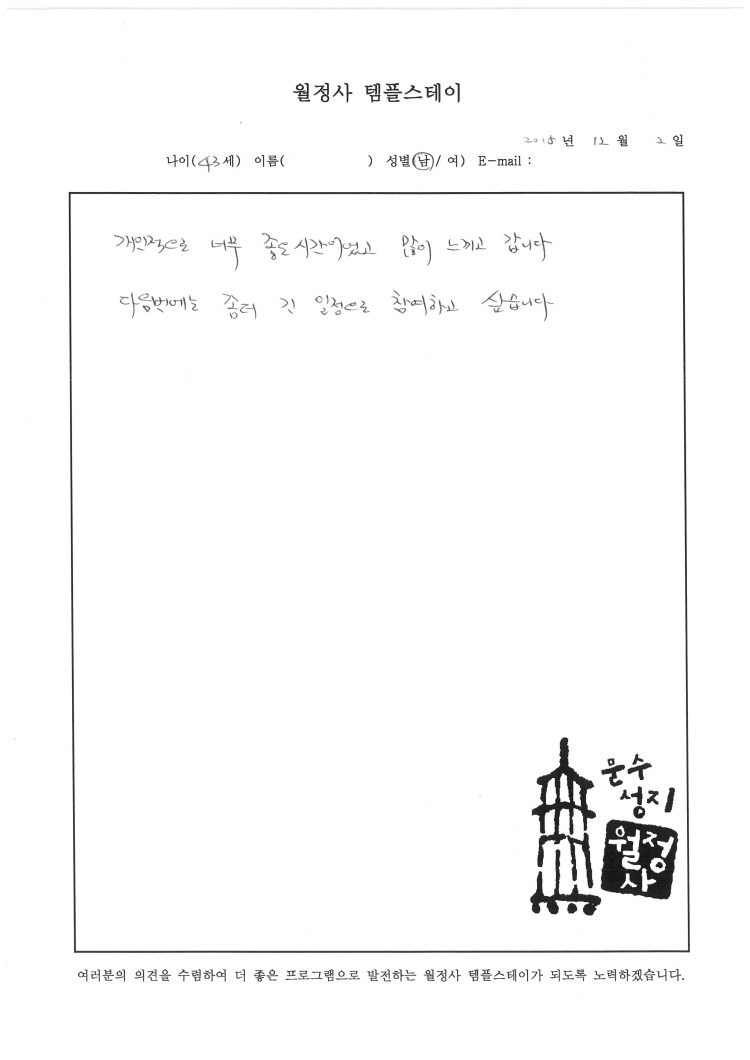 월정사 템플스테이
2015년 12월 2일
나이(43세) 이름( ) 성별(남/ 여) E-mail :
개인적으로 너무 좋은 시간이었고 많이 느끼고 갑니다
다음번에는 좀더 긴 일정으로 참여하고 싶습니다
문수
성지
월정
사
여러분의 의견을 수렴하여 더 좋은 프로그램으로 발전하는 월정사 템플스테이가 되도록 노력하겠습니다.